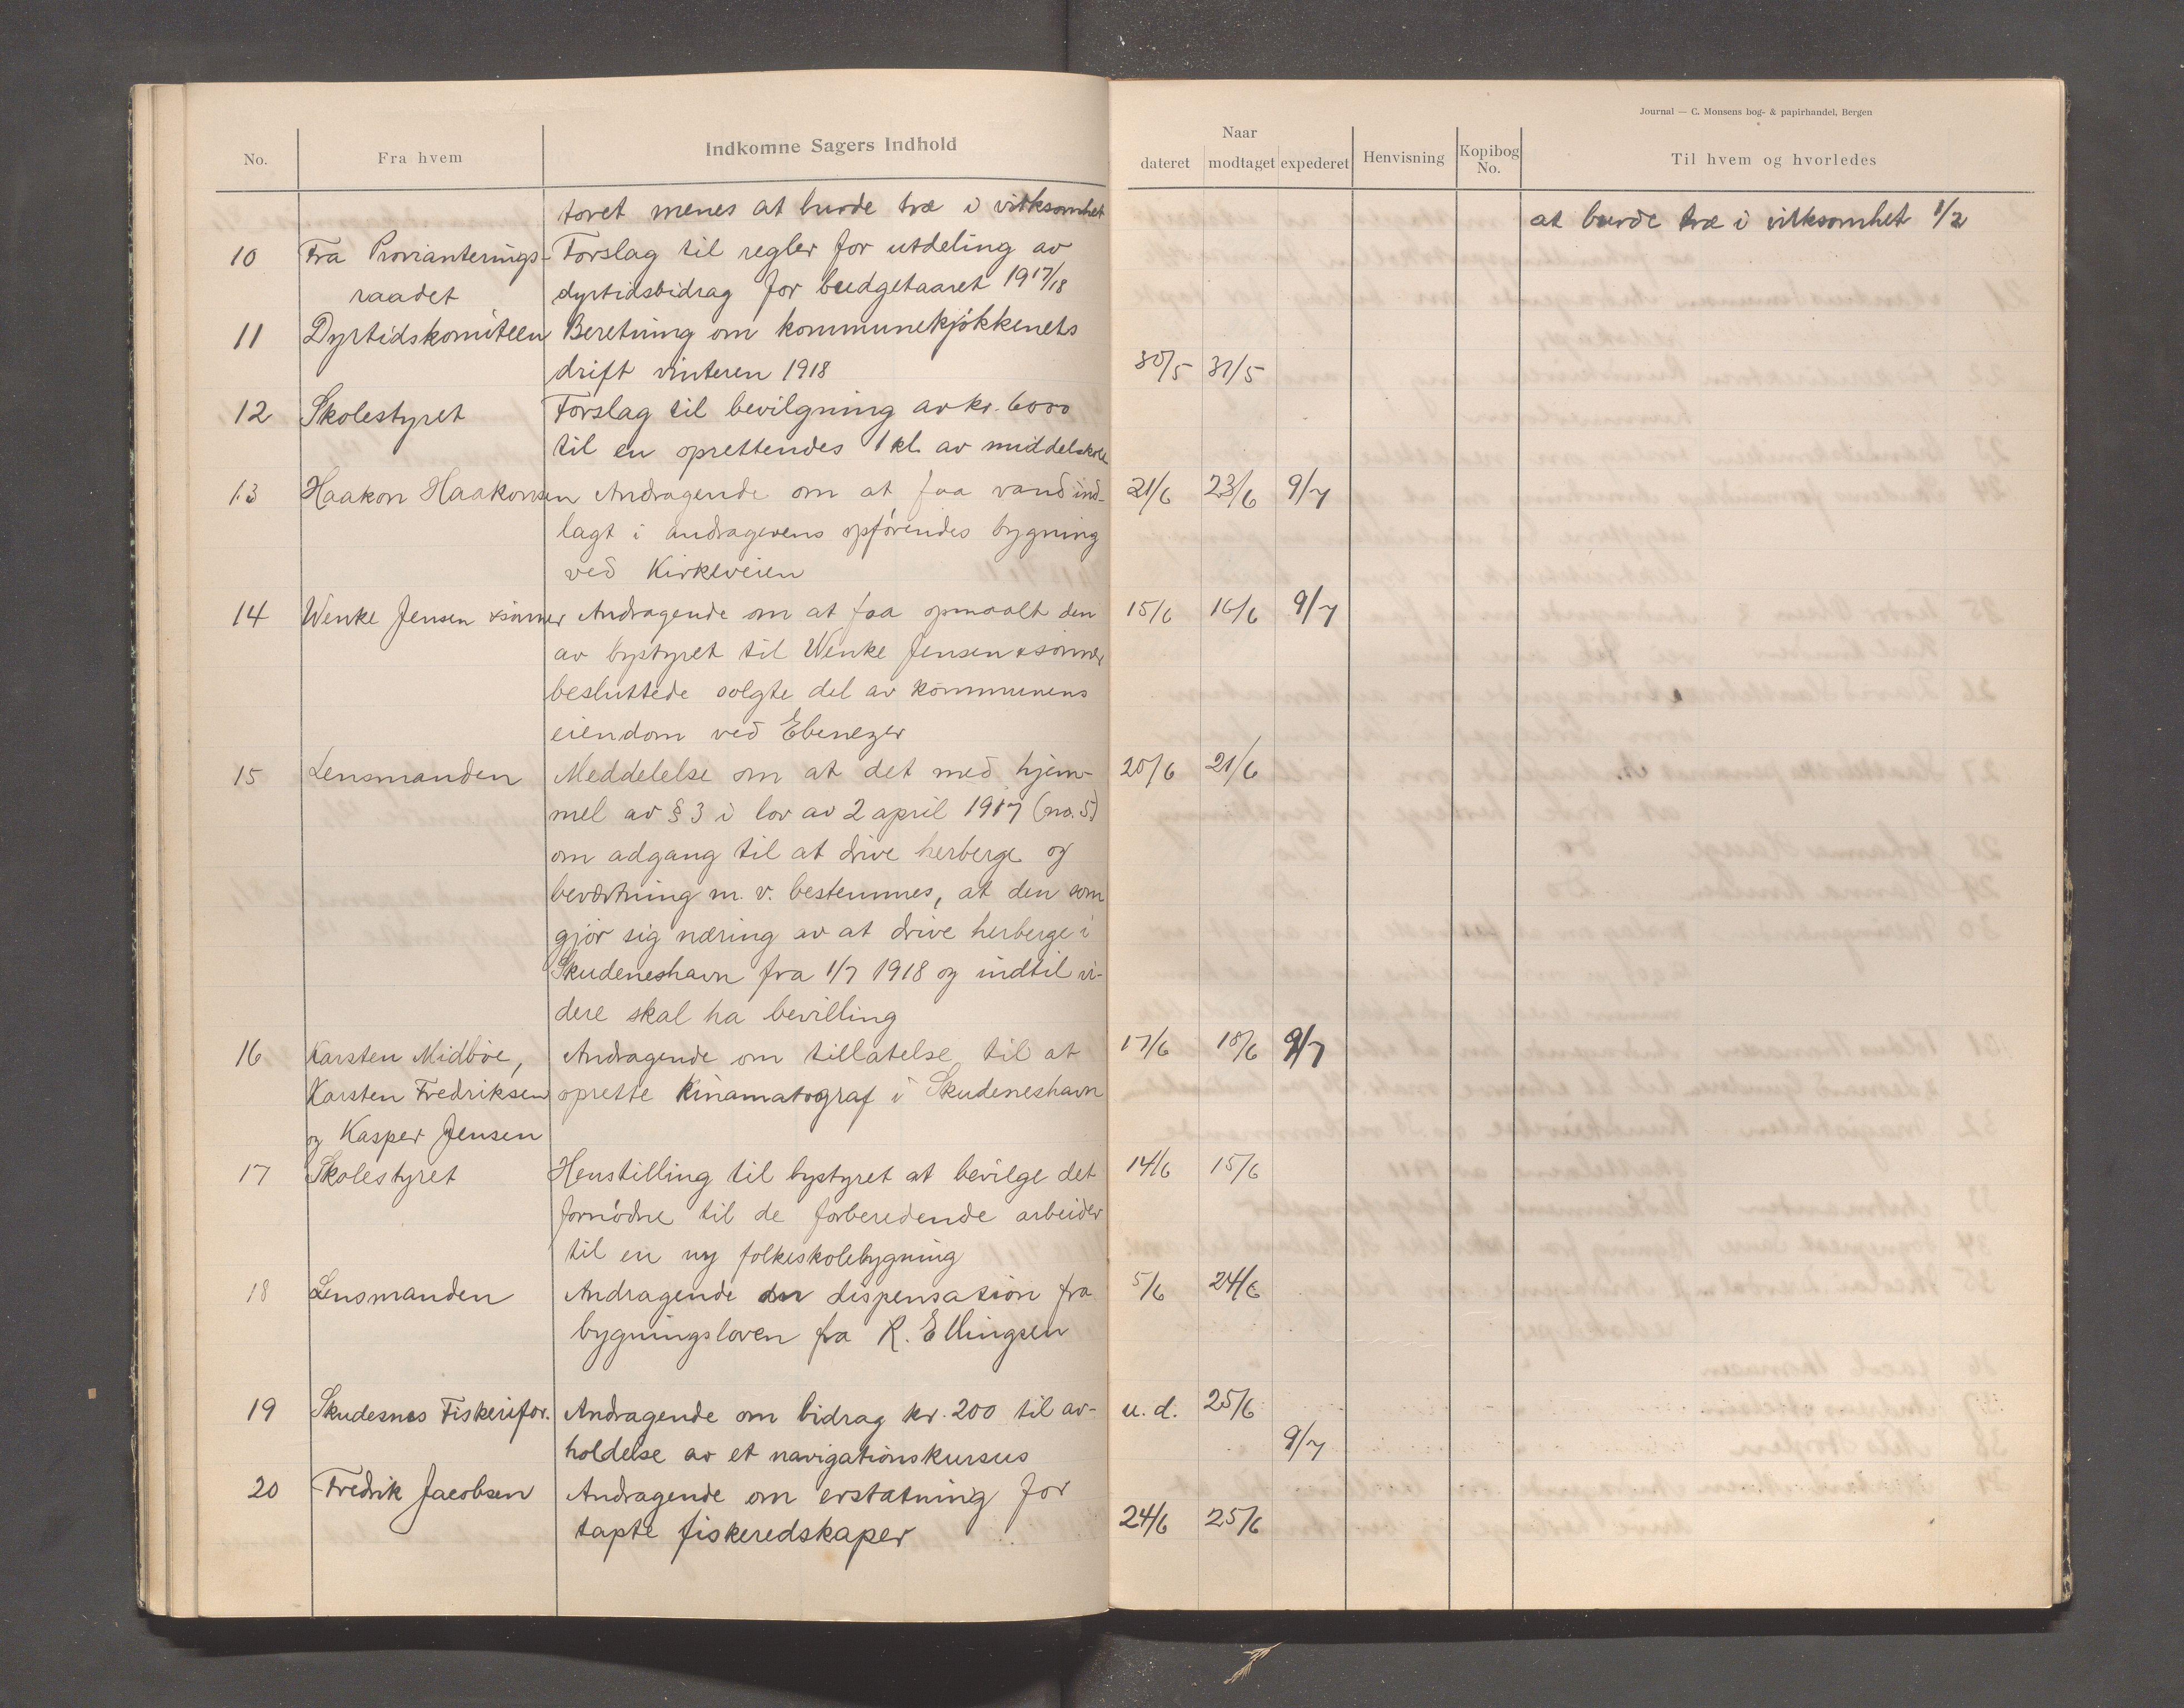 Journal — C. Monsens bog- & papirhandel, Bergen
No. Fra hvem Indkomne Sagers Indhold Naar dateret modtaget expederet Henvisning Kopibog No. Til hvem og hvorledes
toret menes at burde træ i virksomhet at burde træ i virksomhet 1/2
10 Fra Provianterings- Forslag til regler for utdeling av
raadet dyrtidsbidrag for budgetaaret 1917/18
11 Dyrtidskomiteen Beretning om kommunekjøkkenets
drift vinteren 1918 30/5 31/5
12 Skolestyret Forslag til bevilgning av kr. 6000
til en oprettendes 1 kl. av middelskole
13 Haakon Haakonsen Andragende om at faa vand ind- 21/6 23/6 9/7
lagt i andragerens opførendes bygning
ved Kirkeveien
14 Wenke Jensen & sønner Andragende om at faa opmaalt den 15/6 16/6 9/7
av bystyret til Wenke Jensen & sønner
besluttede solgte del av kommunens
eiendom ved Ebenezer
15 Lensmanden Meddelelse om at det med hjem- 20/6 21/6
mel av § 3 i lov av 2 april 1917 (no. 5)
om adgang til at drive herberge og
beværtning m. v. bestemmes, at den som
gjør sig næring av at drive herberge i
Skudeneshavn fra 1/7 1918 og indtil vi-
dere skal ha bevilling
16 Karsten Midbøe, Andragende om tillatelse til at 17/6 18/6 9/7
Karsten Fredriksen oprette Kinamatograf i Skudeneshavn
og Kasper Jensen
17 Skolestyret Henstilling til bystyret at bevilge det 14/6 15/6
fornødne til de forberedende arbeider
til en ny folkeskolebygning
18 Lensmanden Andragende om dispensation fra 5/6 24/6
bygningsloven fra R. Ellingsen
19 Skudesnes Fiskerifor. Andragende om bidrag kr. 200 til av- u. d. 25/6
holdelse av et navigationskursus 9/7
20 Fredrik Jacobsen Andragende om erstatning for
tapte fiskeredskaper 24/6 25/6